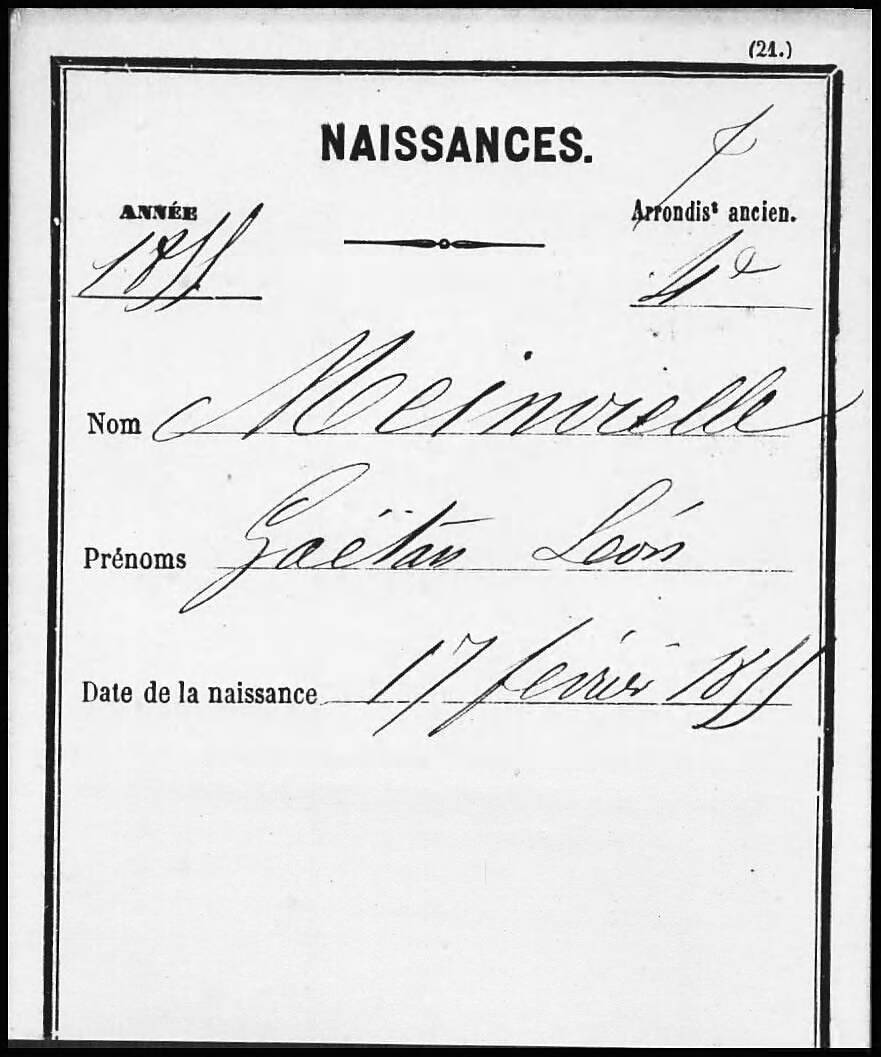 (21.)
NAISSANCES.
ANNÉE
1855
Arrondisᵗ ancien.
4e
Nom Meinvielle
Prénoms Gaëtan Léon
Date de la naissance 17 février 1855